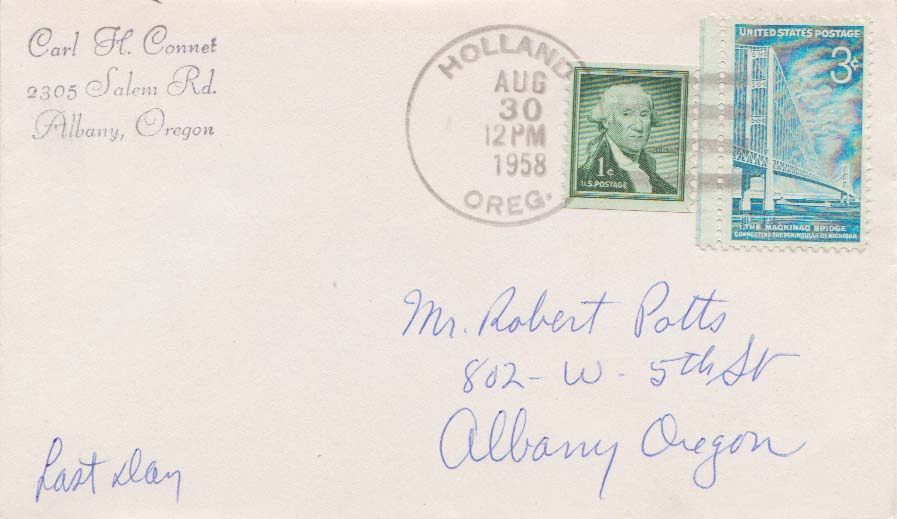 Carl H. Connet
2305 Salem Rd.
Albany, Oregon
HOLLAND
AUG
30
12 PM
1958
OREG.
WASHINGTON
1¢
U.S. POSTAGE
UNITED STATES POSTAGE
3¢
THE MACKINAC BRIDGE
CONNECTING THE PENINSULAS OF MICHIGAN
Mr. Robert Potts
802 - W - 5th St
Albany Oregon
Last Day